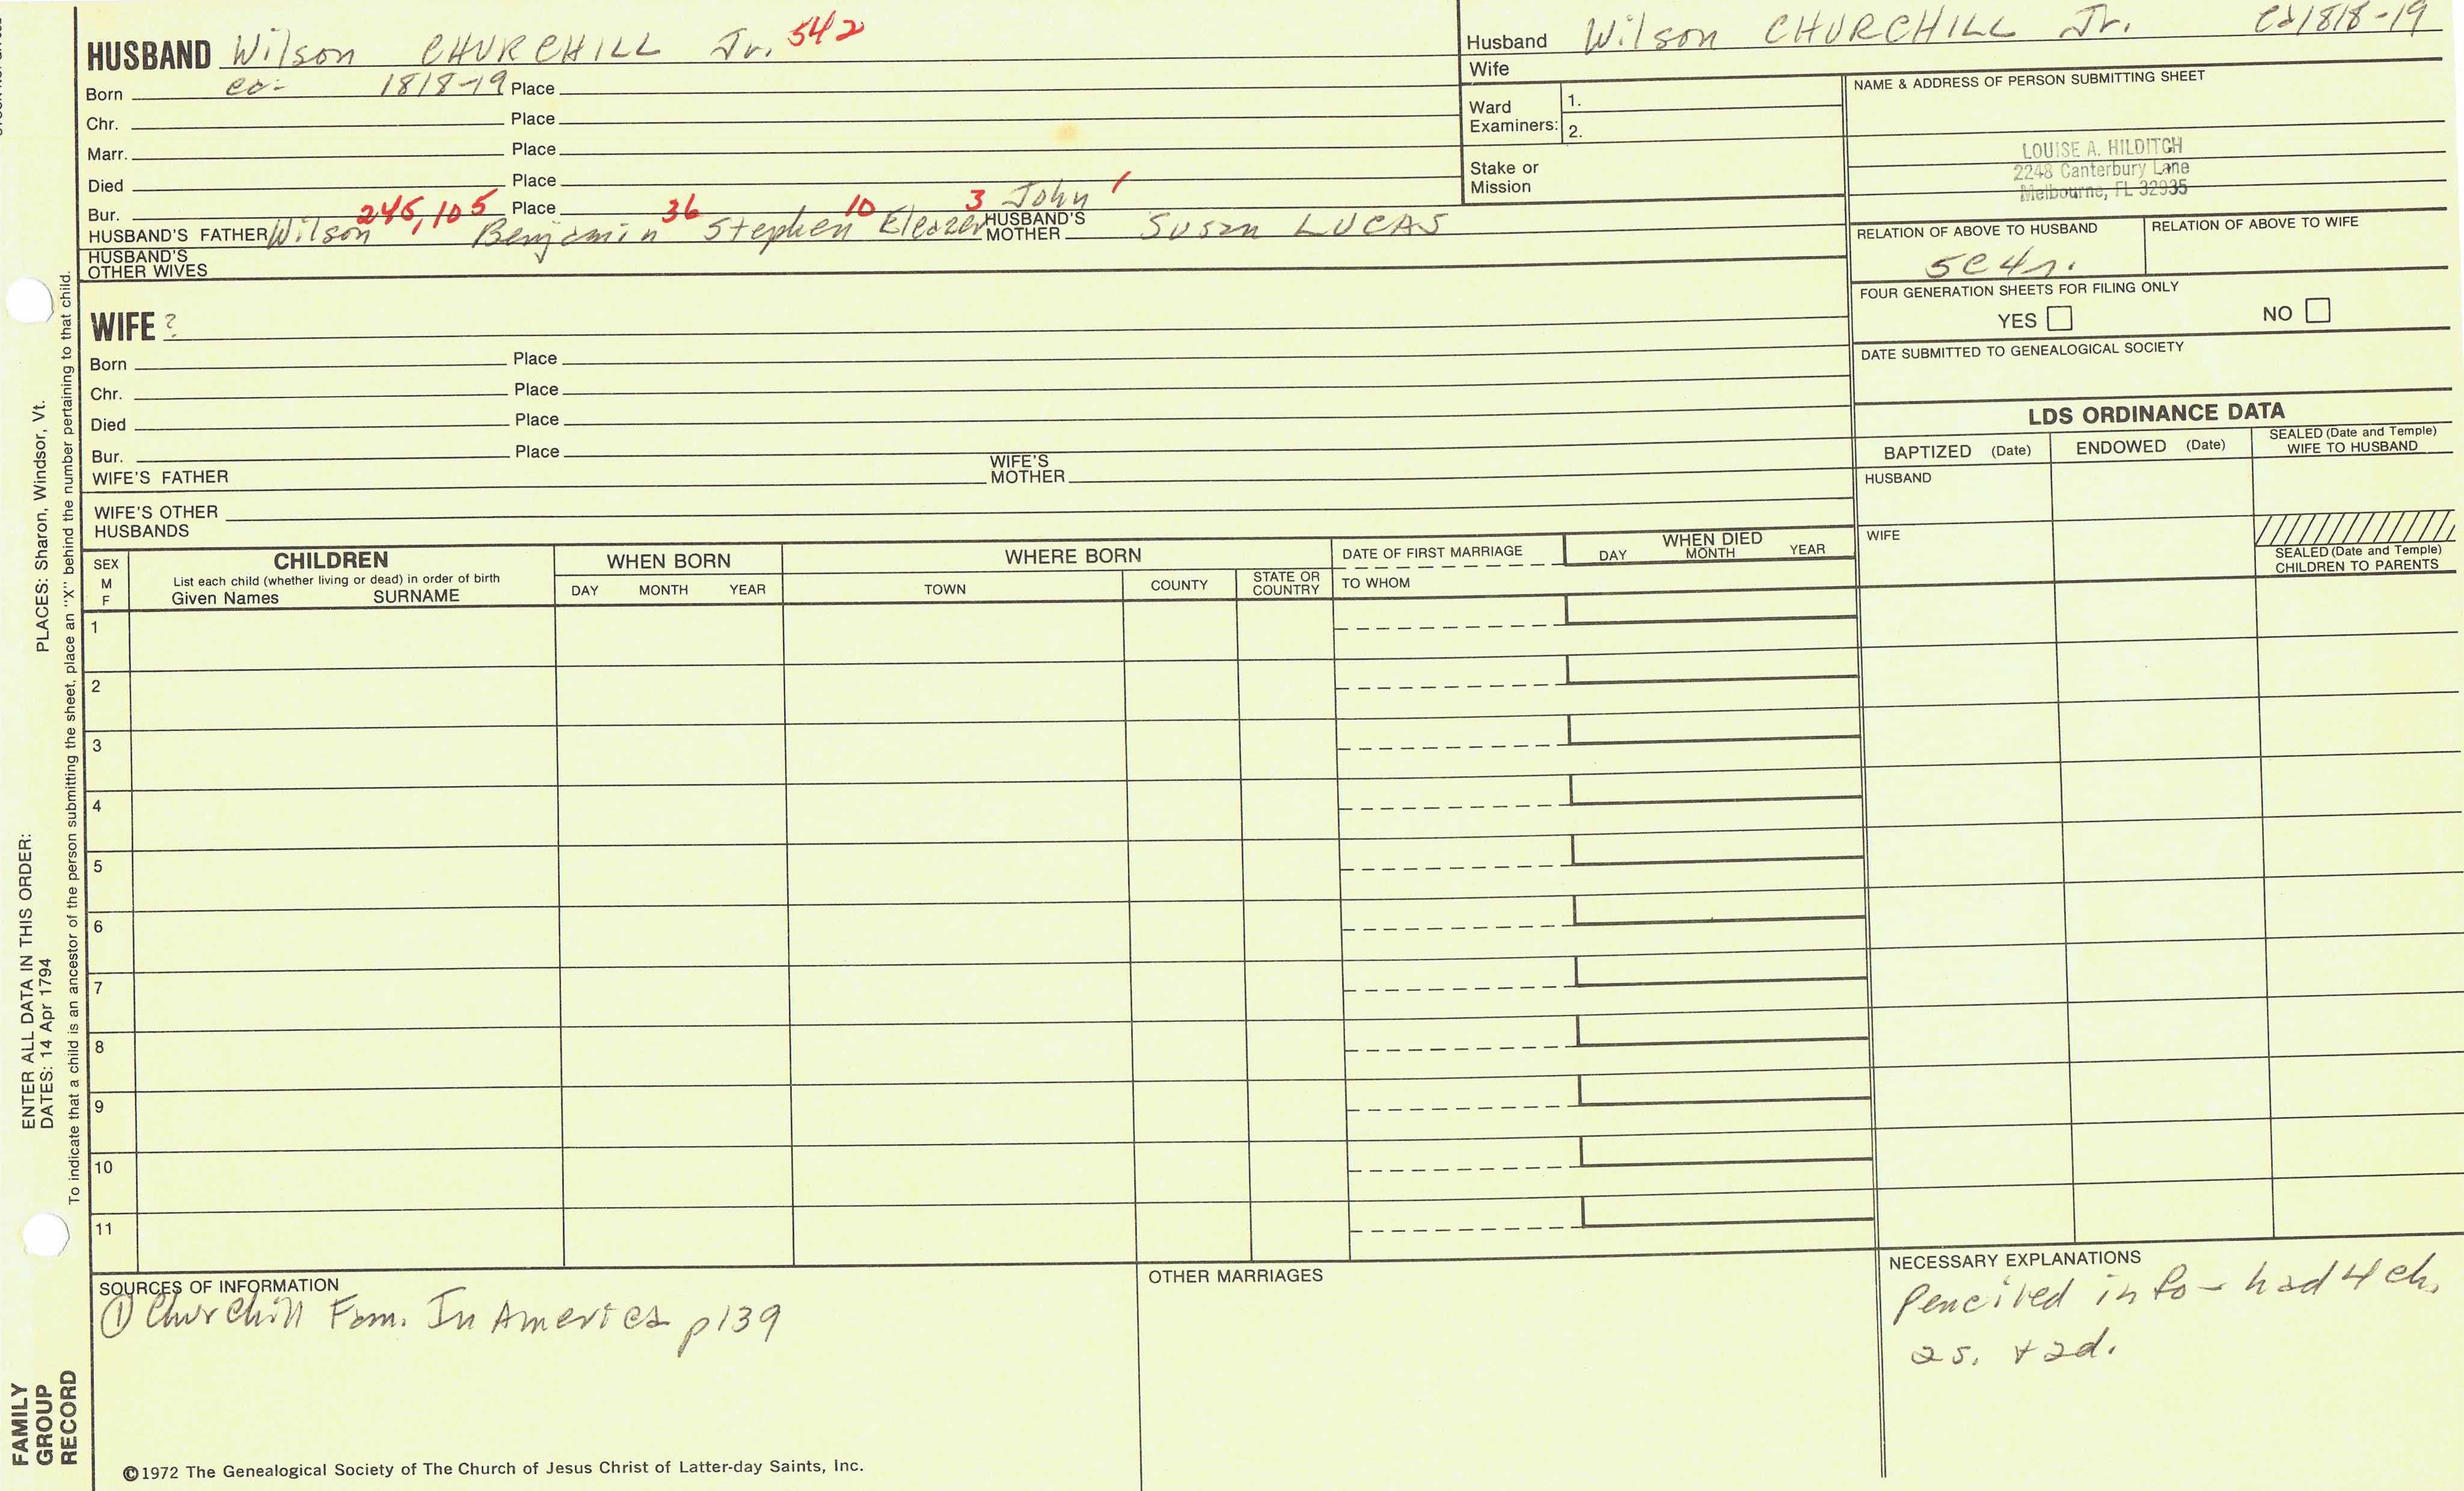 HUSBAND Wilson CHURCHILL Jr. 542
Born ca- 1818-19 Place
Chr. Place
Marr. Place
Died Place
Bur. Place
HUSBAND'S FATHER Wilson 245, 105 Benjamin 36 Stephen 10 Eleazer 3 John 1
HUSBAND'S MOTHER Susan LUCAS
HUSBAND'S OTHER WIVES
WIFE ?
Born Place
Chr. Place
Died Place
Bur. Place
WIFE'S FATHER WIFE'S MOTHER
WIFE'S OTHER HUSBANDS
Husband Wilson CHURCHILL Jr. ca 1818-19
Wife
Ward Examiners: 1.
2.
Stake or Mission
NAME & ADDRESS OF PERSON SUBMITTING SHEET
LOUISE A. HILDITCH
2248 Canterbury Lane
Melbourne, FL 32935
RELATION OF ABOVE TO HUSBAND RELATION OF ABOVE TO WIFE
5c4r.
FOUR GENERATION SHEETS FOR FILING ONLY
YES NO
DATE SUBMITTED TO GENEALOGICAL SOCIETY
LDS ORDINANCE DATA
BAPTIZED (Date) ENDOWED (Date) SEALED (Date and Temple) WIFE TO HUSBAND
HUSBAND
WIFE
SEALED (Date and Temple) CHILDREN TO PARENTS
SEX M F
CHILDREN
List each child (whether living or dead) in order of birth
Given Names SURNAME
WHEN BORN
DAY MONTH YEAR
WHERE BORN
TOWN COUNTY STATE OR COUNTRY
DATE OF FIRST MARRIAGE
TO WHOM
WHEN DIED
DAY MONTH YEAR
1
2
3
4
5
6
7
8
9
10
11
SOURCES OF INFORMATION
① Churchill Fam. In America p139
OTHER MARRIAGES
NECESSARY EXPLANATIONS
Penciled info - had 4 ch.
2s. + 2d.
©1972 The Genealogical Society of The Church of Jesus Christ of Latter-day Saints, Inc.
FAMILY
GROUP
RECORD
ENTER ALL DATA IN THIS ORDER:
DATES: 14 Apr 1794
PLACES: Sharon, Windsor, Vt.
To indicate that a child is an ancestor of the person submitting the sheet, place an "X" behind the number pertaining to that child.